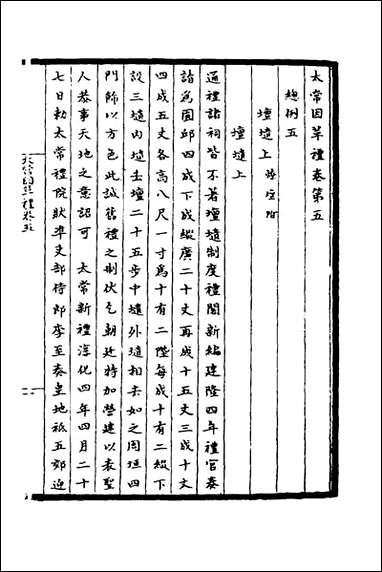 太常因革禮卷第五
總例五
壇壝上
壇壝上
通禮諸祠皆不著壇壝制度禮閣新編建隆四年禮官奏
請爲圜邱四成下成縱廣二十丈再成十五丈三成十丈
四成五丈各高八尺一寸爲十有二陛每成十有二綴下
設三壝内壝去壇二十五步中壝外壝相去如之周垣四
門飾以方色此誠舊禮之制伏乞朝廷特加營建以表聖
人恭事天地之意詔可 太常新禮淳化四年四月二十
七日勅太常禮院狀準吏部侍郎李至奏皇地祇五郊迎
太常因革禮卷五